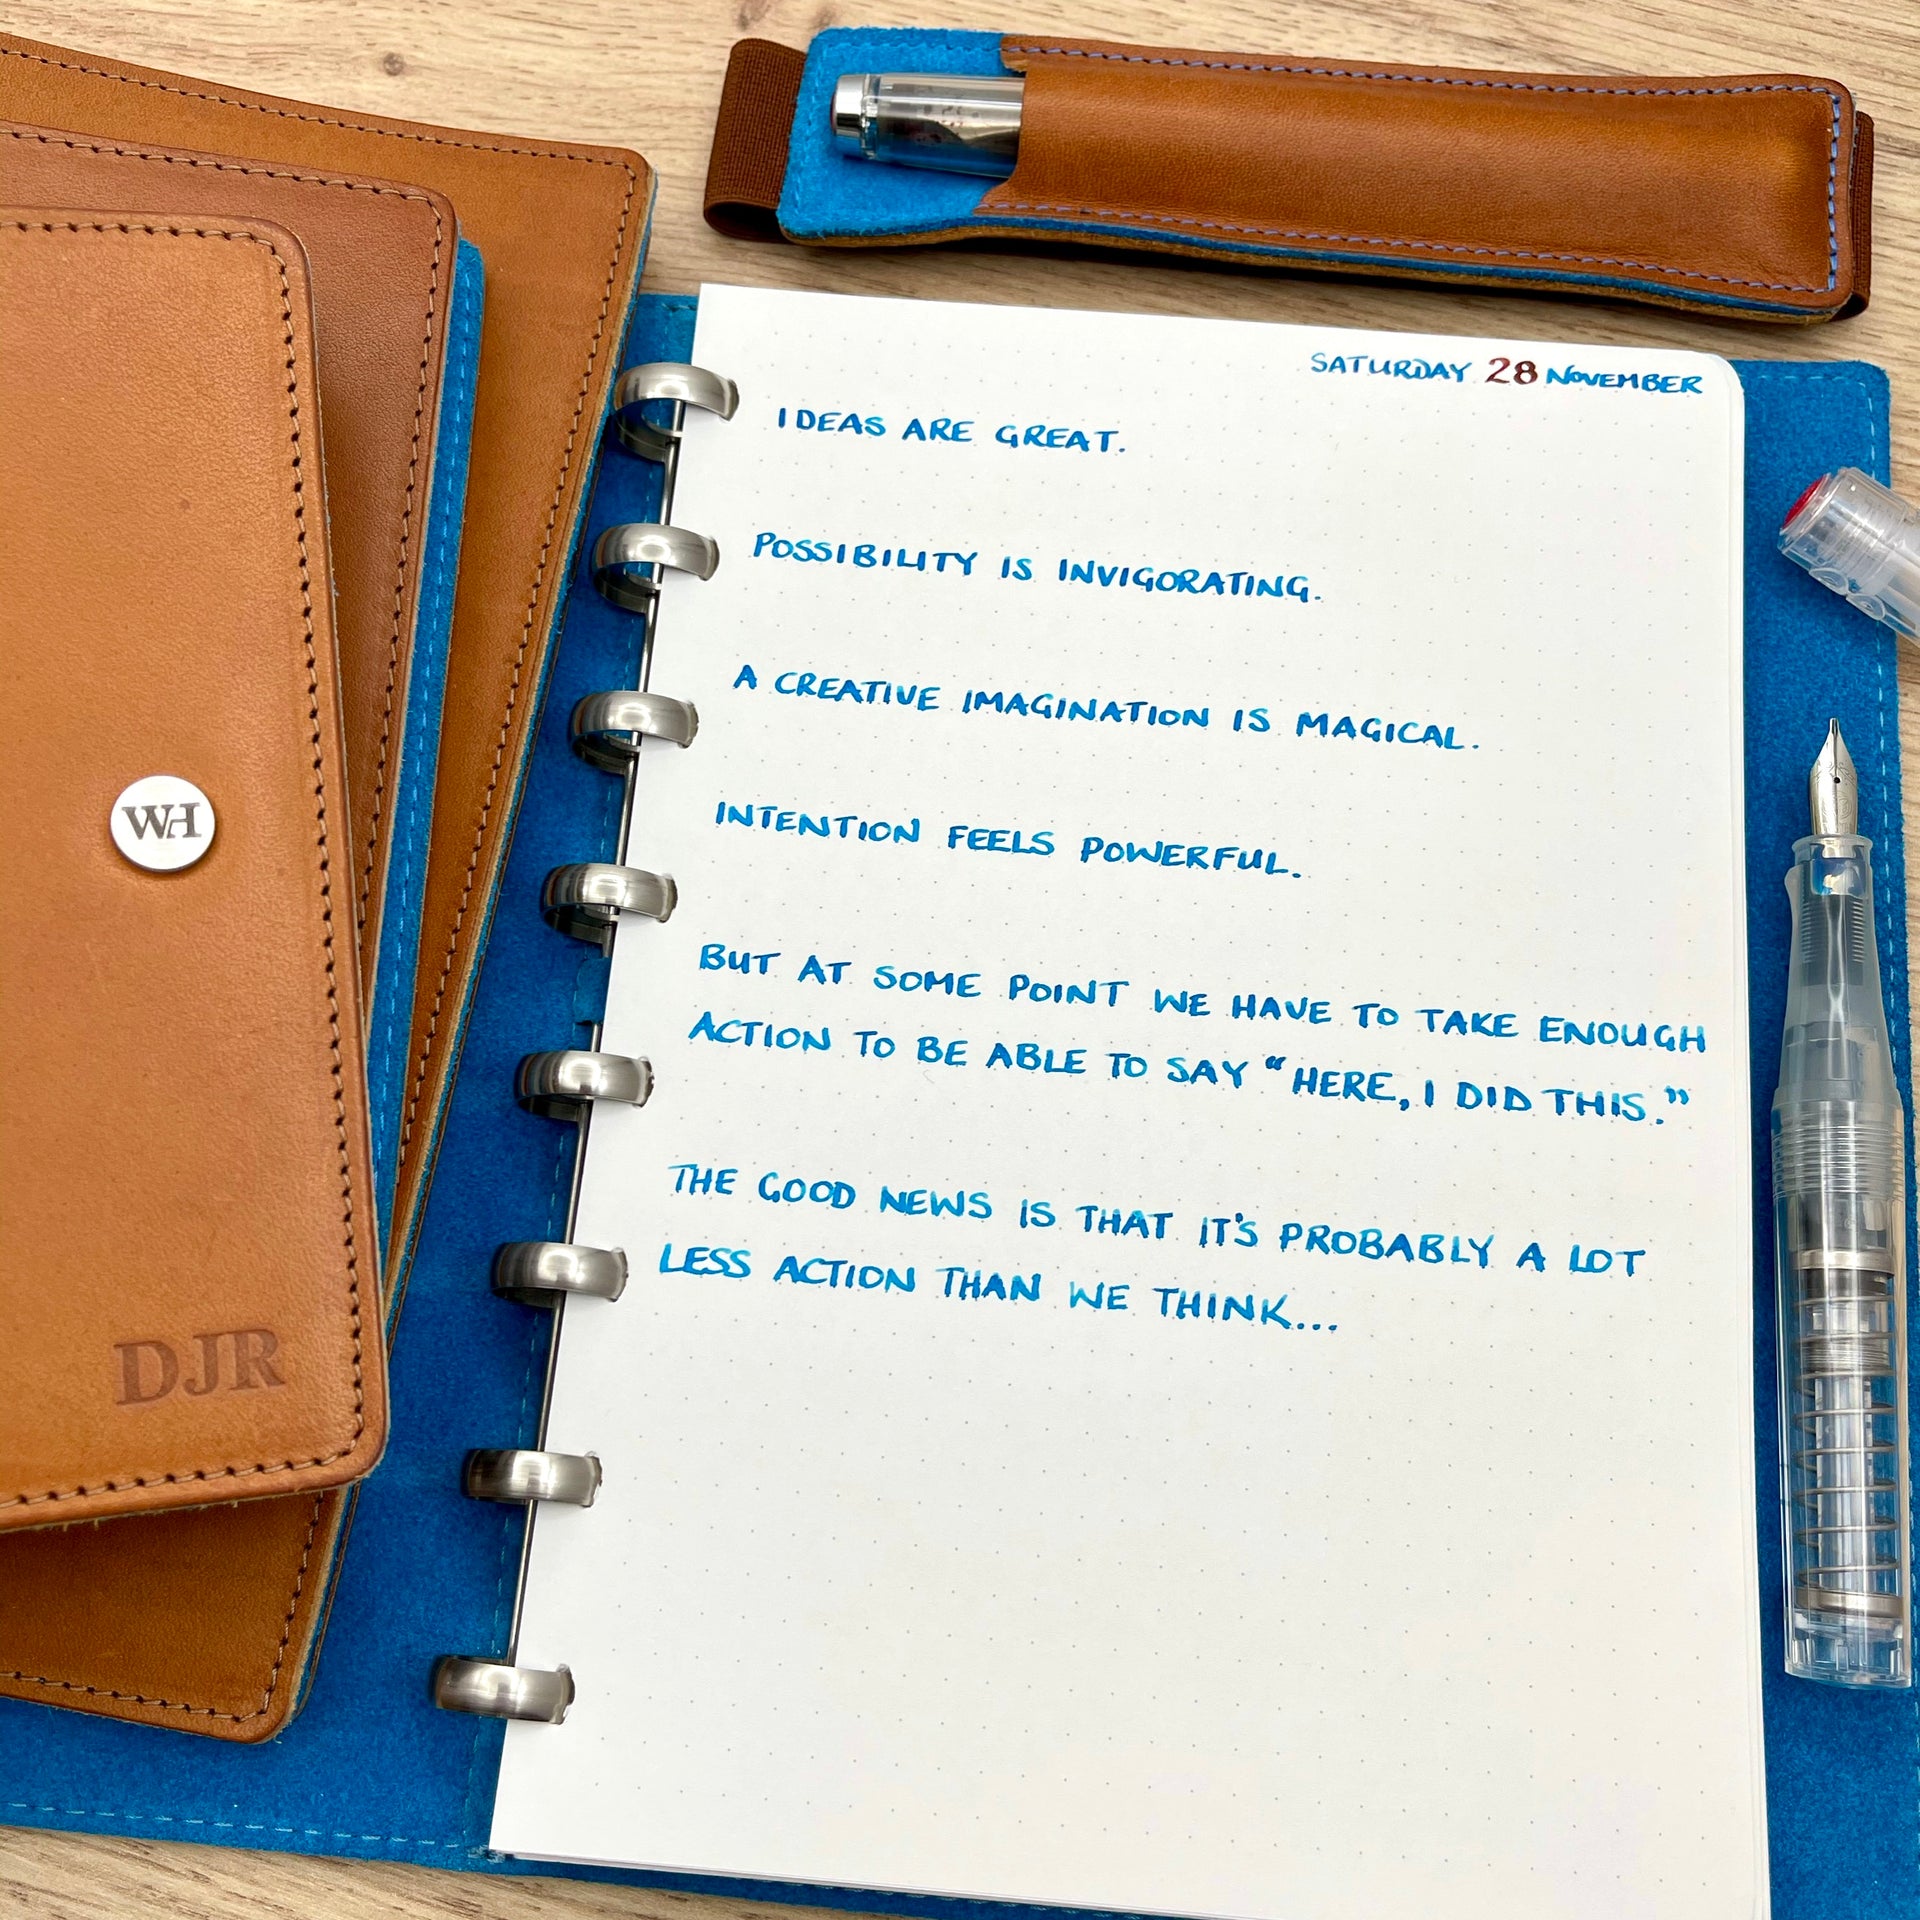 SATURDAY 28 NOVEMBER
IDEAS ARE GREAT.
POSSIBILITY IS INVIGORATING.
A CREATIVE IMAGINATION IS MAGICAL.
INTENTION FEELS POWERFUL.
BUT AT SOME POINT WE HAVE TO TAKE ENOUGH
ACTION TO BE ABLE TO SAY “HERE, I DID THIS.”
THE GOOD NEWS IS THAT IT'S PROBABLY A LOT
LESS ACTION THAN WE THINK...
WH
DJR